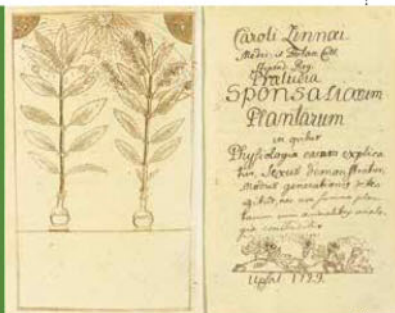 Caroli Linnæi
Medic. et Botan. Cult.
Upsal. Reg.
Præludia
Sponsaliarum
Plantarum
in quibus
Physiologia earum explica
tur, Sexus demonstratur,
modus generationis dete-
gitur, nec non summa plan-
tarum cum animalibus analo-
gia concluditur
Upsal. 1729.